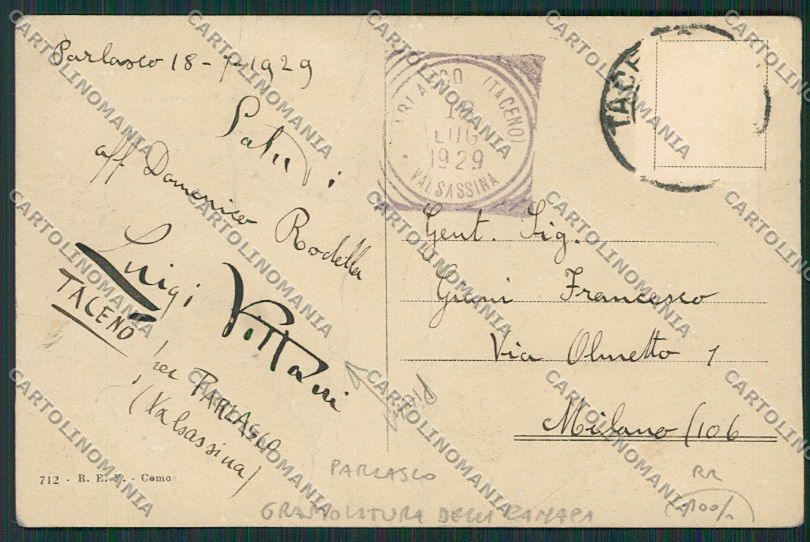 Parlasco 18-7-1929
Saluti
aff Domenico Rodella
Luigi Vittani
TACENO
per PARLASCO
(Valsassina)
PARLASCO (TACENO)
18
LUG
1929
VALSASSINA
TACE
Gent. Sig.
Grioni Francesco
Via Olmetto 1
Milano (106
712 - R. E. - Como
PARLASCO
RR
CARTOLINOMANIA